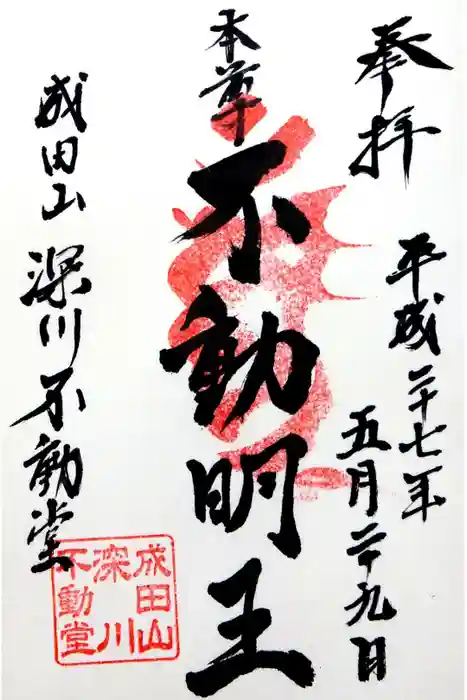 奉拝
平成二十七年
五月二十九日
本尊
不動明王
成田山深川不動堂
成田山
深川
不動堂